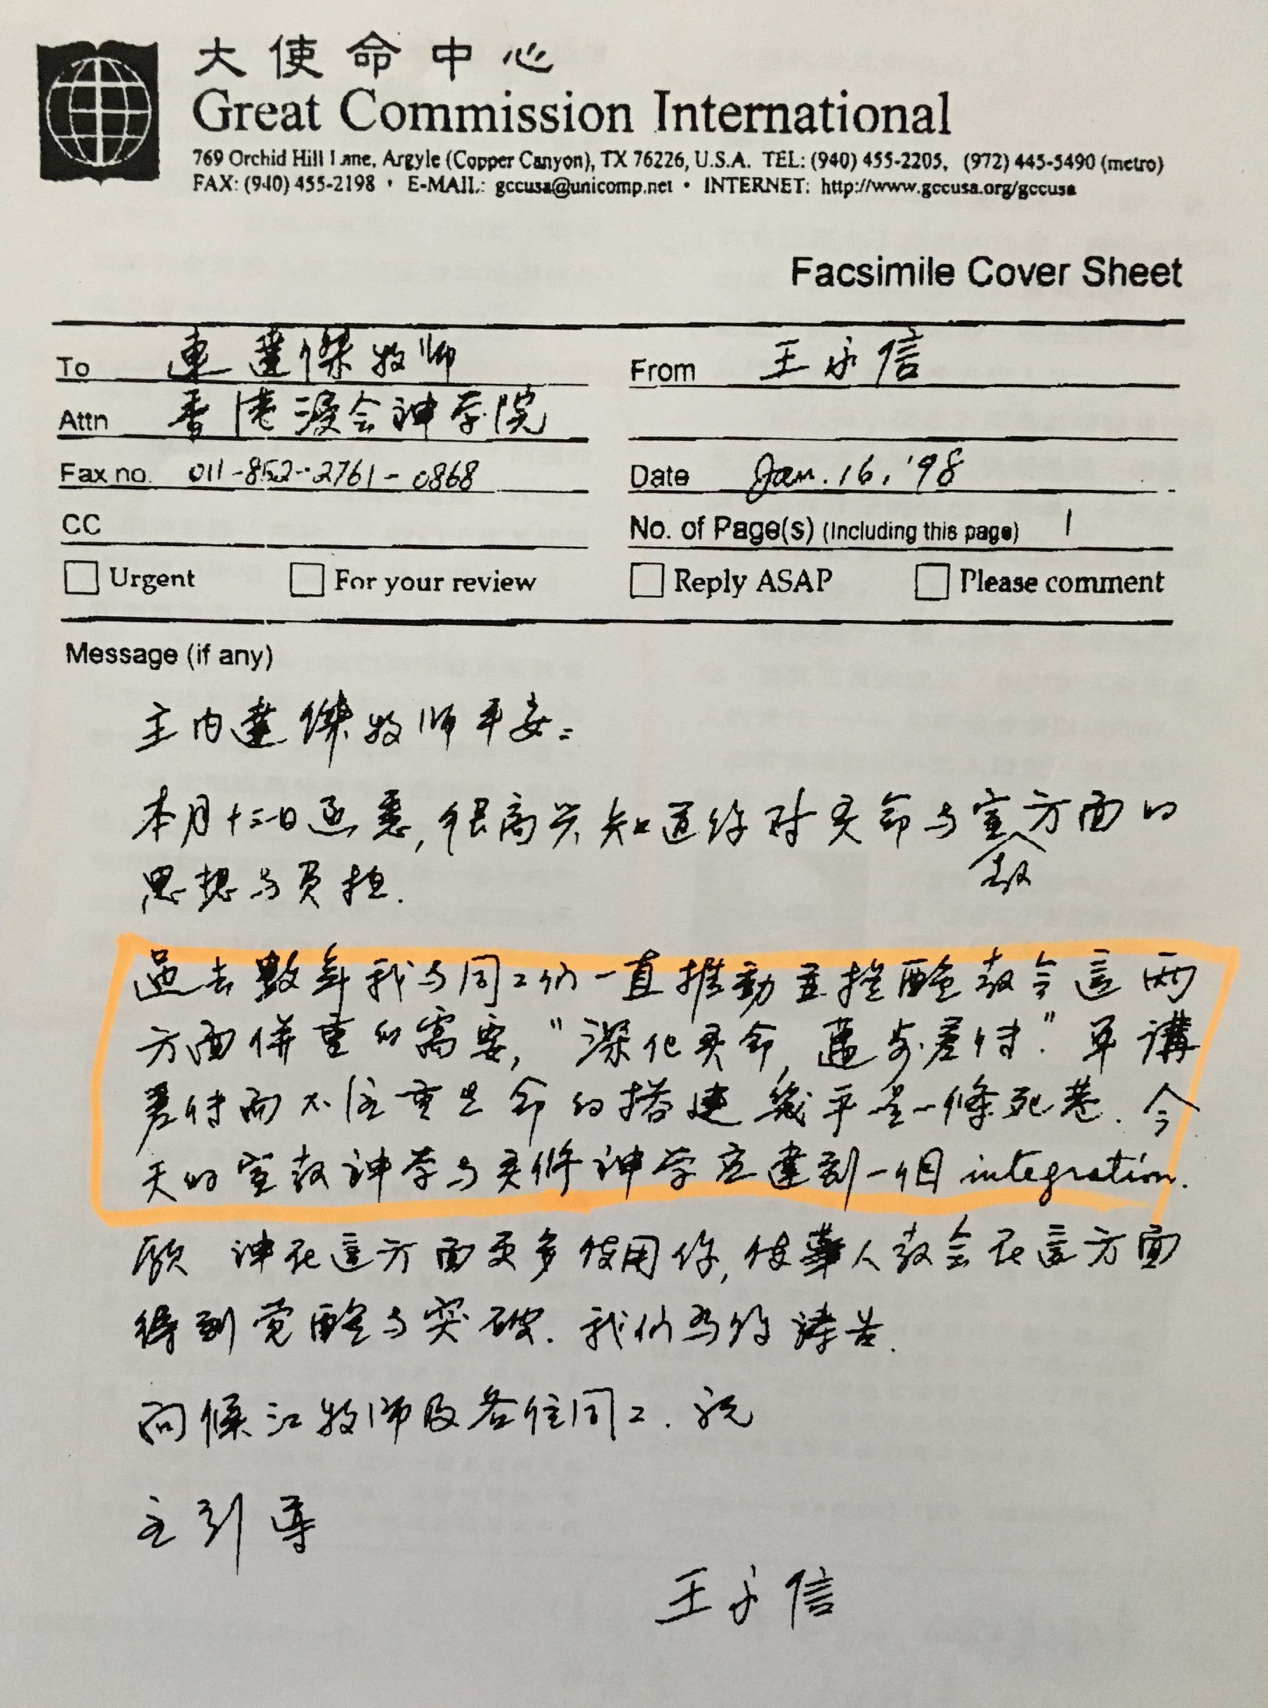 大使命中心
Great Commission International
769 Orchid Hill Lane, Argyle (Copper Canyon), TX 76226, U.S.A. TEL: (940) 455-2205, (972) 445-5490 (metro)
FAX: (940) 455-2198 • E-MAIL: gccusa@unicomp.net • INTERNET: http://www.gccusa.org/gccusa
Facsimile Cover Sheet
To 連達傑牧师 From 王永信
Attn 香港浸会神学院
Fax no. 011-852-2761-0868 Date Jan. 16, '98
CC No. of Page(s) (Including this page) 1
Urgent For your review Reply ASAP Please comment
Message (if any)
主内達傑牧师平安:
本月十三日函悉,很高兴知道你对灵命与宣教方面的
思想与负担.
過去數年我与同工们一直推動主控醒教会這两
方面併重的需要, "深化灵命, 差传". 单講
差传而不注重灵命的搭建幾乎是一條死巷. 今
天的宣教神学与灵修神学应達到一個 integration.
願 神在這方面更多使用你, 使華人教会在這方面
得到觉醒与突破. 我们为你禱告.
问候江牧师及各位同工. 祝
主引导
王永信